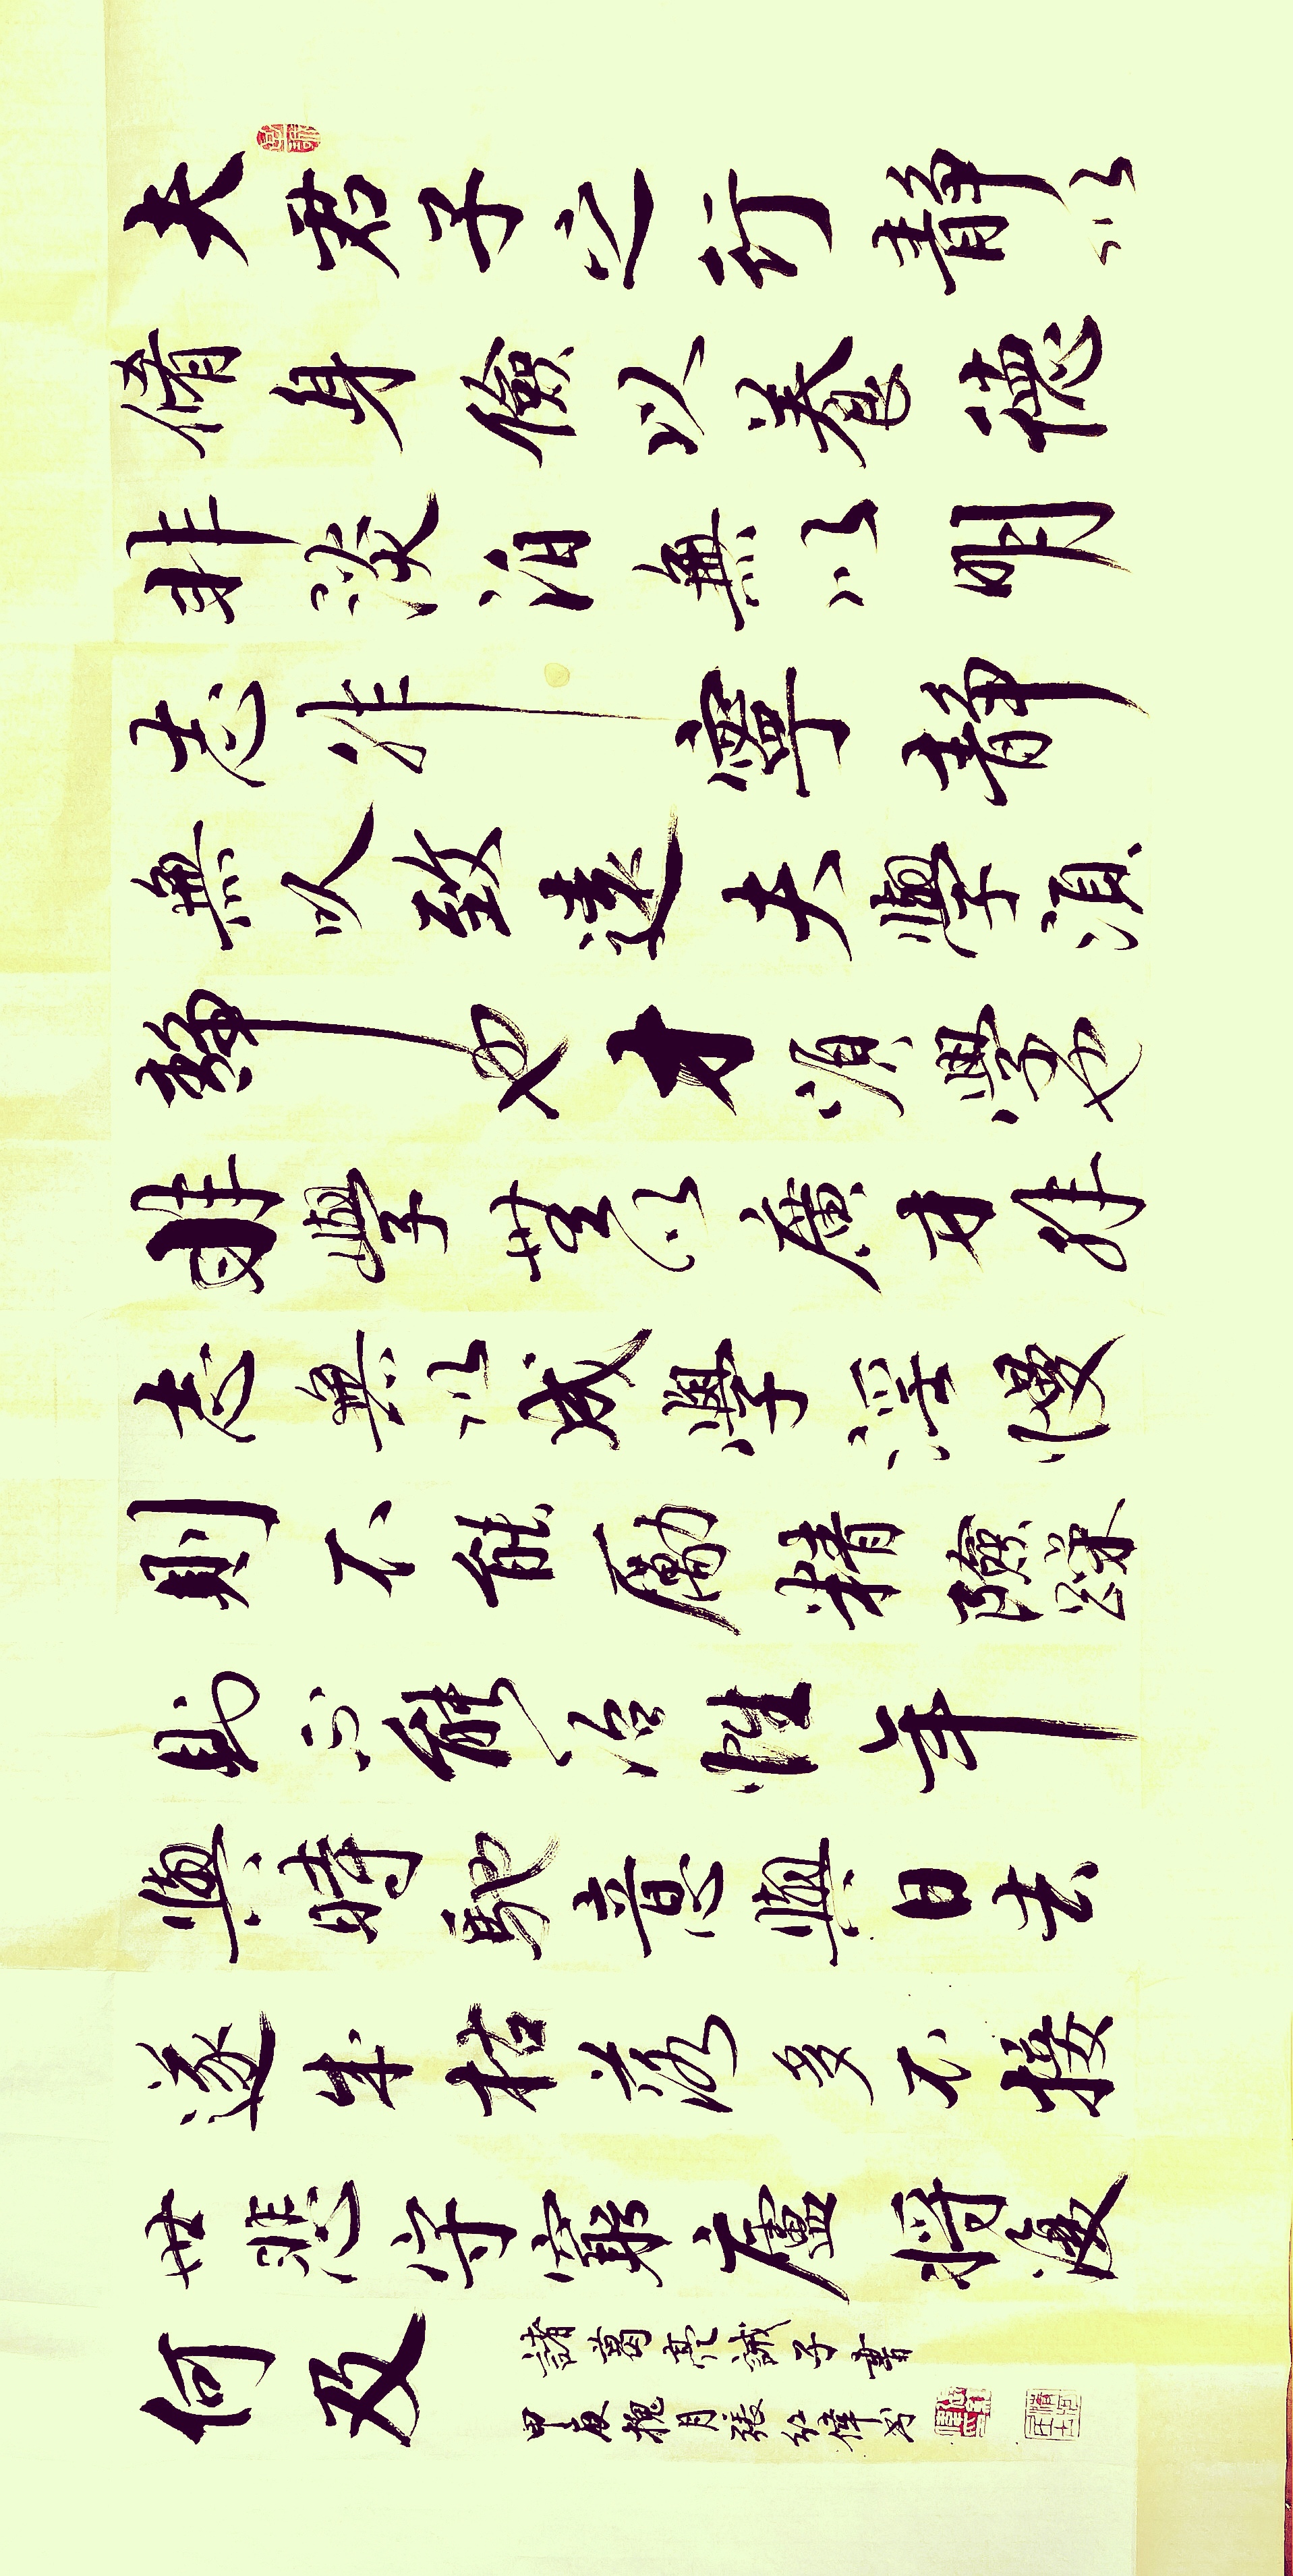 夫君子之行靜以
脩身儉以養德
非淡泊無以明
志非寧靜
無以致遠夫學須
靜也才須學也
非學無以廣才非
志無以成學淫慢
則不能勵精險躁
則不能治性年
與時馳意與日去
遂成枯落多不接
世悲守窮廬將復
何及
諸葛亮誡子書
甲辰槐月張紅偉書